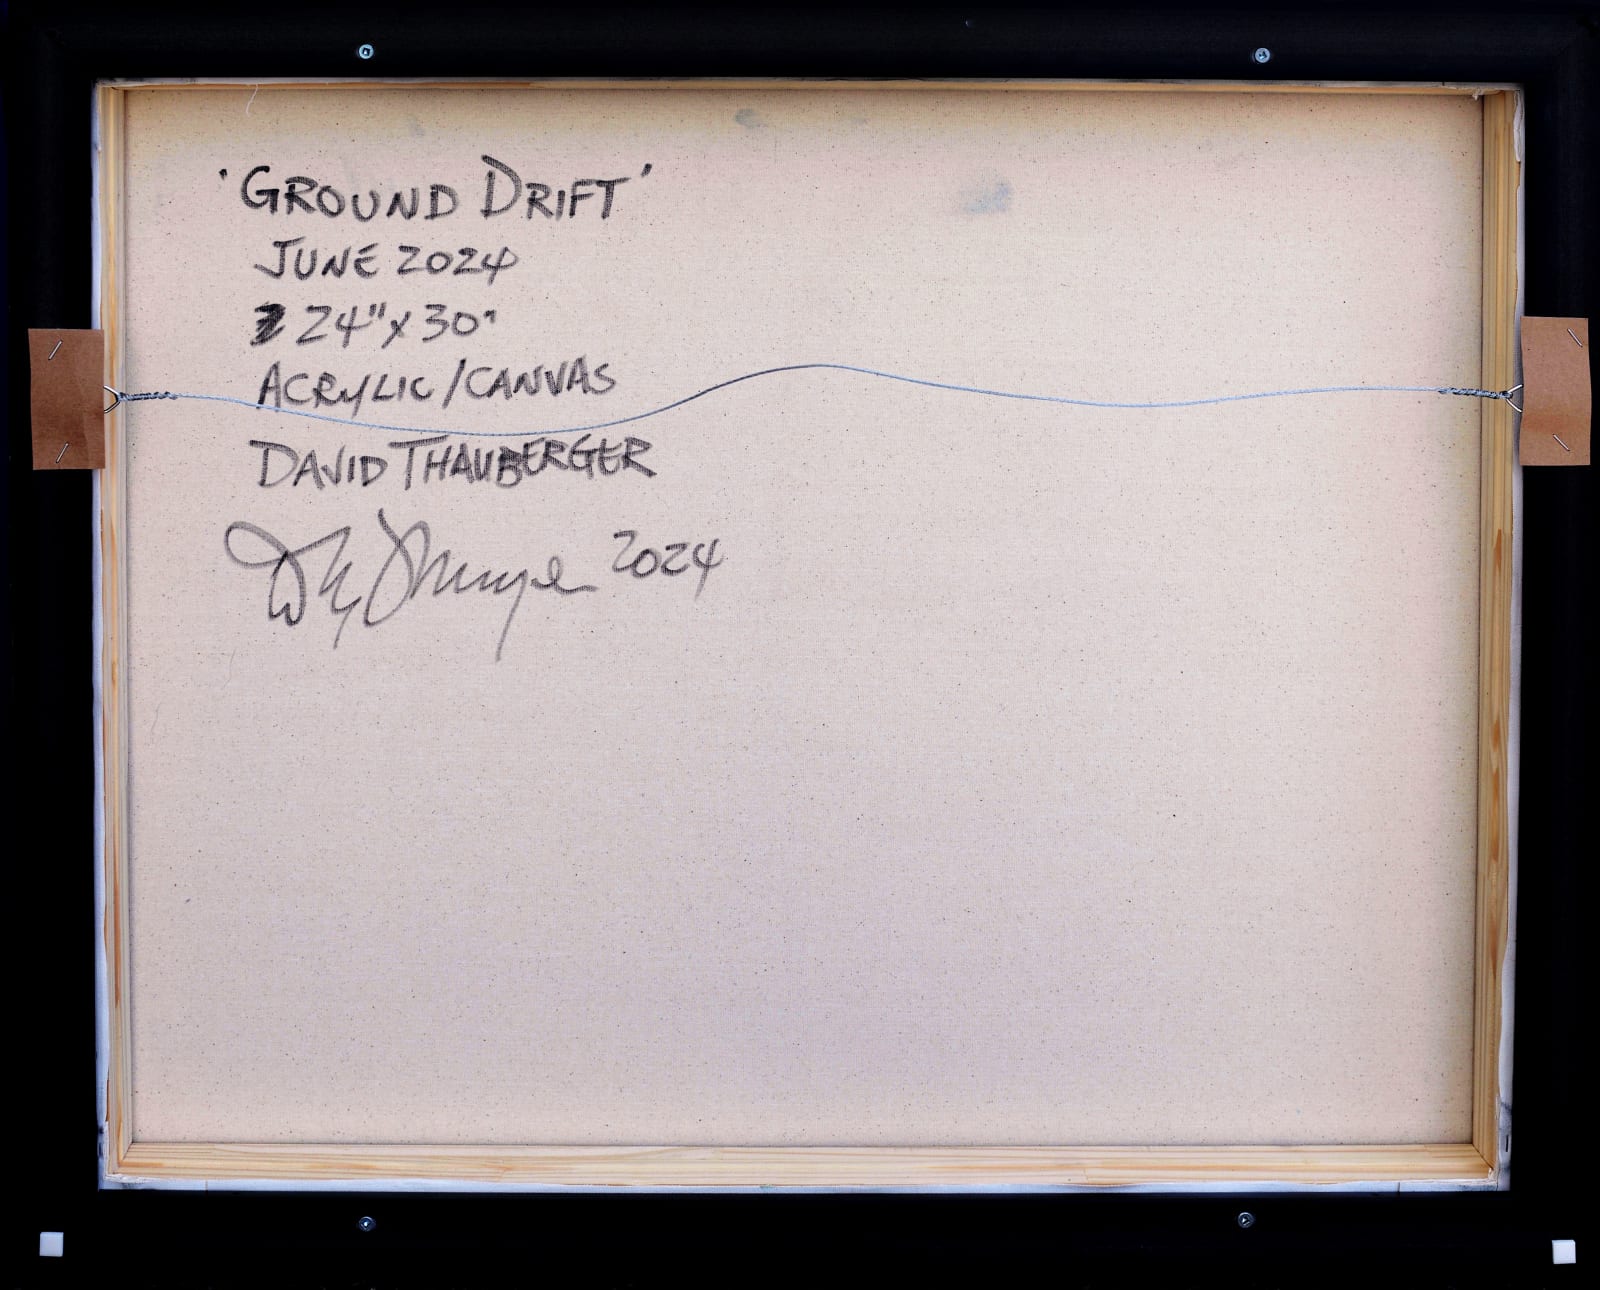 'GROUND DRIFT'
JUNE 2024
24" x 30"
ACRYLIC/CANVAS
DAVID THAUBERGER
2024